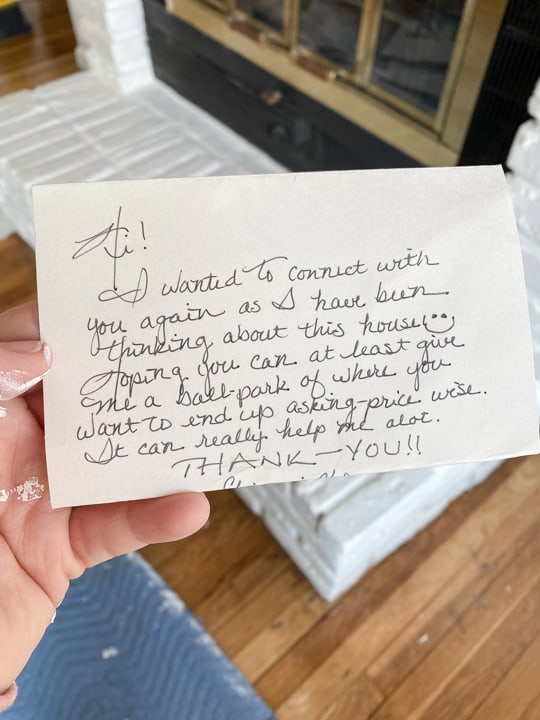 Hi!
I wanted to connect with
you again as I have been
thinking about this house!
Hoping you can at least give
me a ball-park of where you
want to end up asking-price wise.
It can really help me alot.
THANK-YOU!!